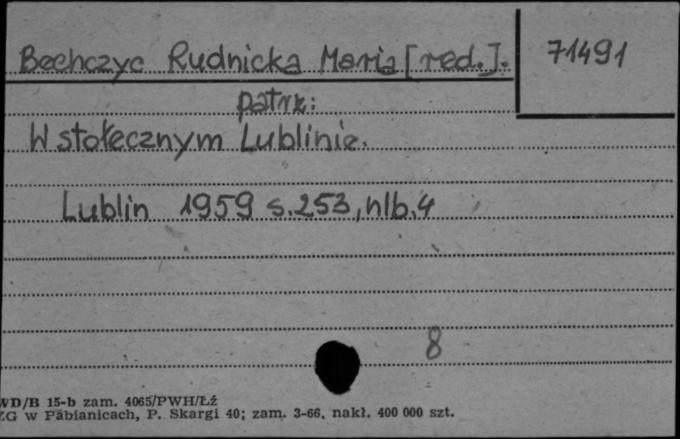 Bechczyc Rudnicka Maria [red.].
71491
patrz:
W stołecznym Lublinie.
Lublin 1959 s. 253, nlb. 4
8
WD/B 15-b zam. 4065/PWH/Łź
ZG w Pabianicach, P. Skargi 40; zam. 3-66, nakł. 400 000 szt.